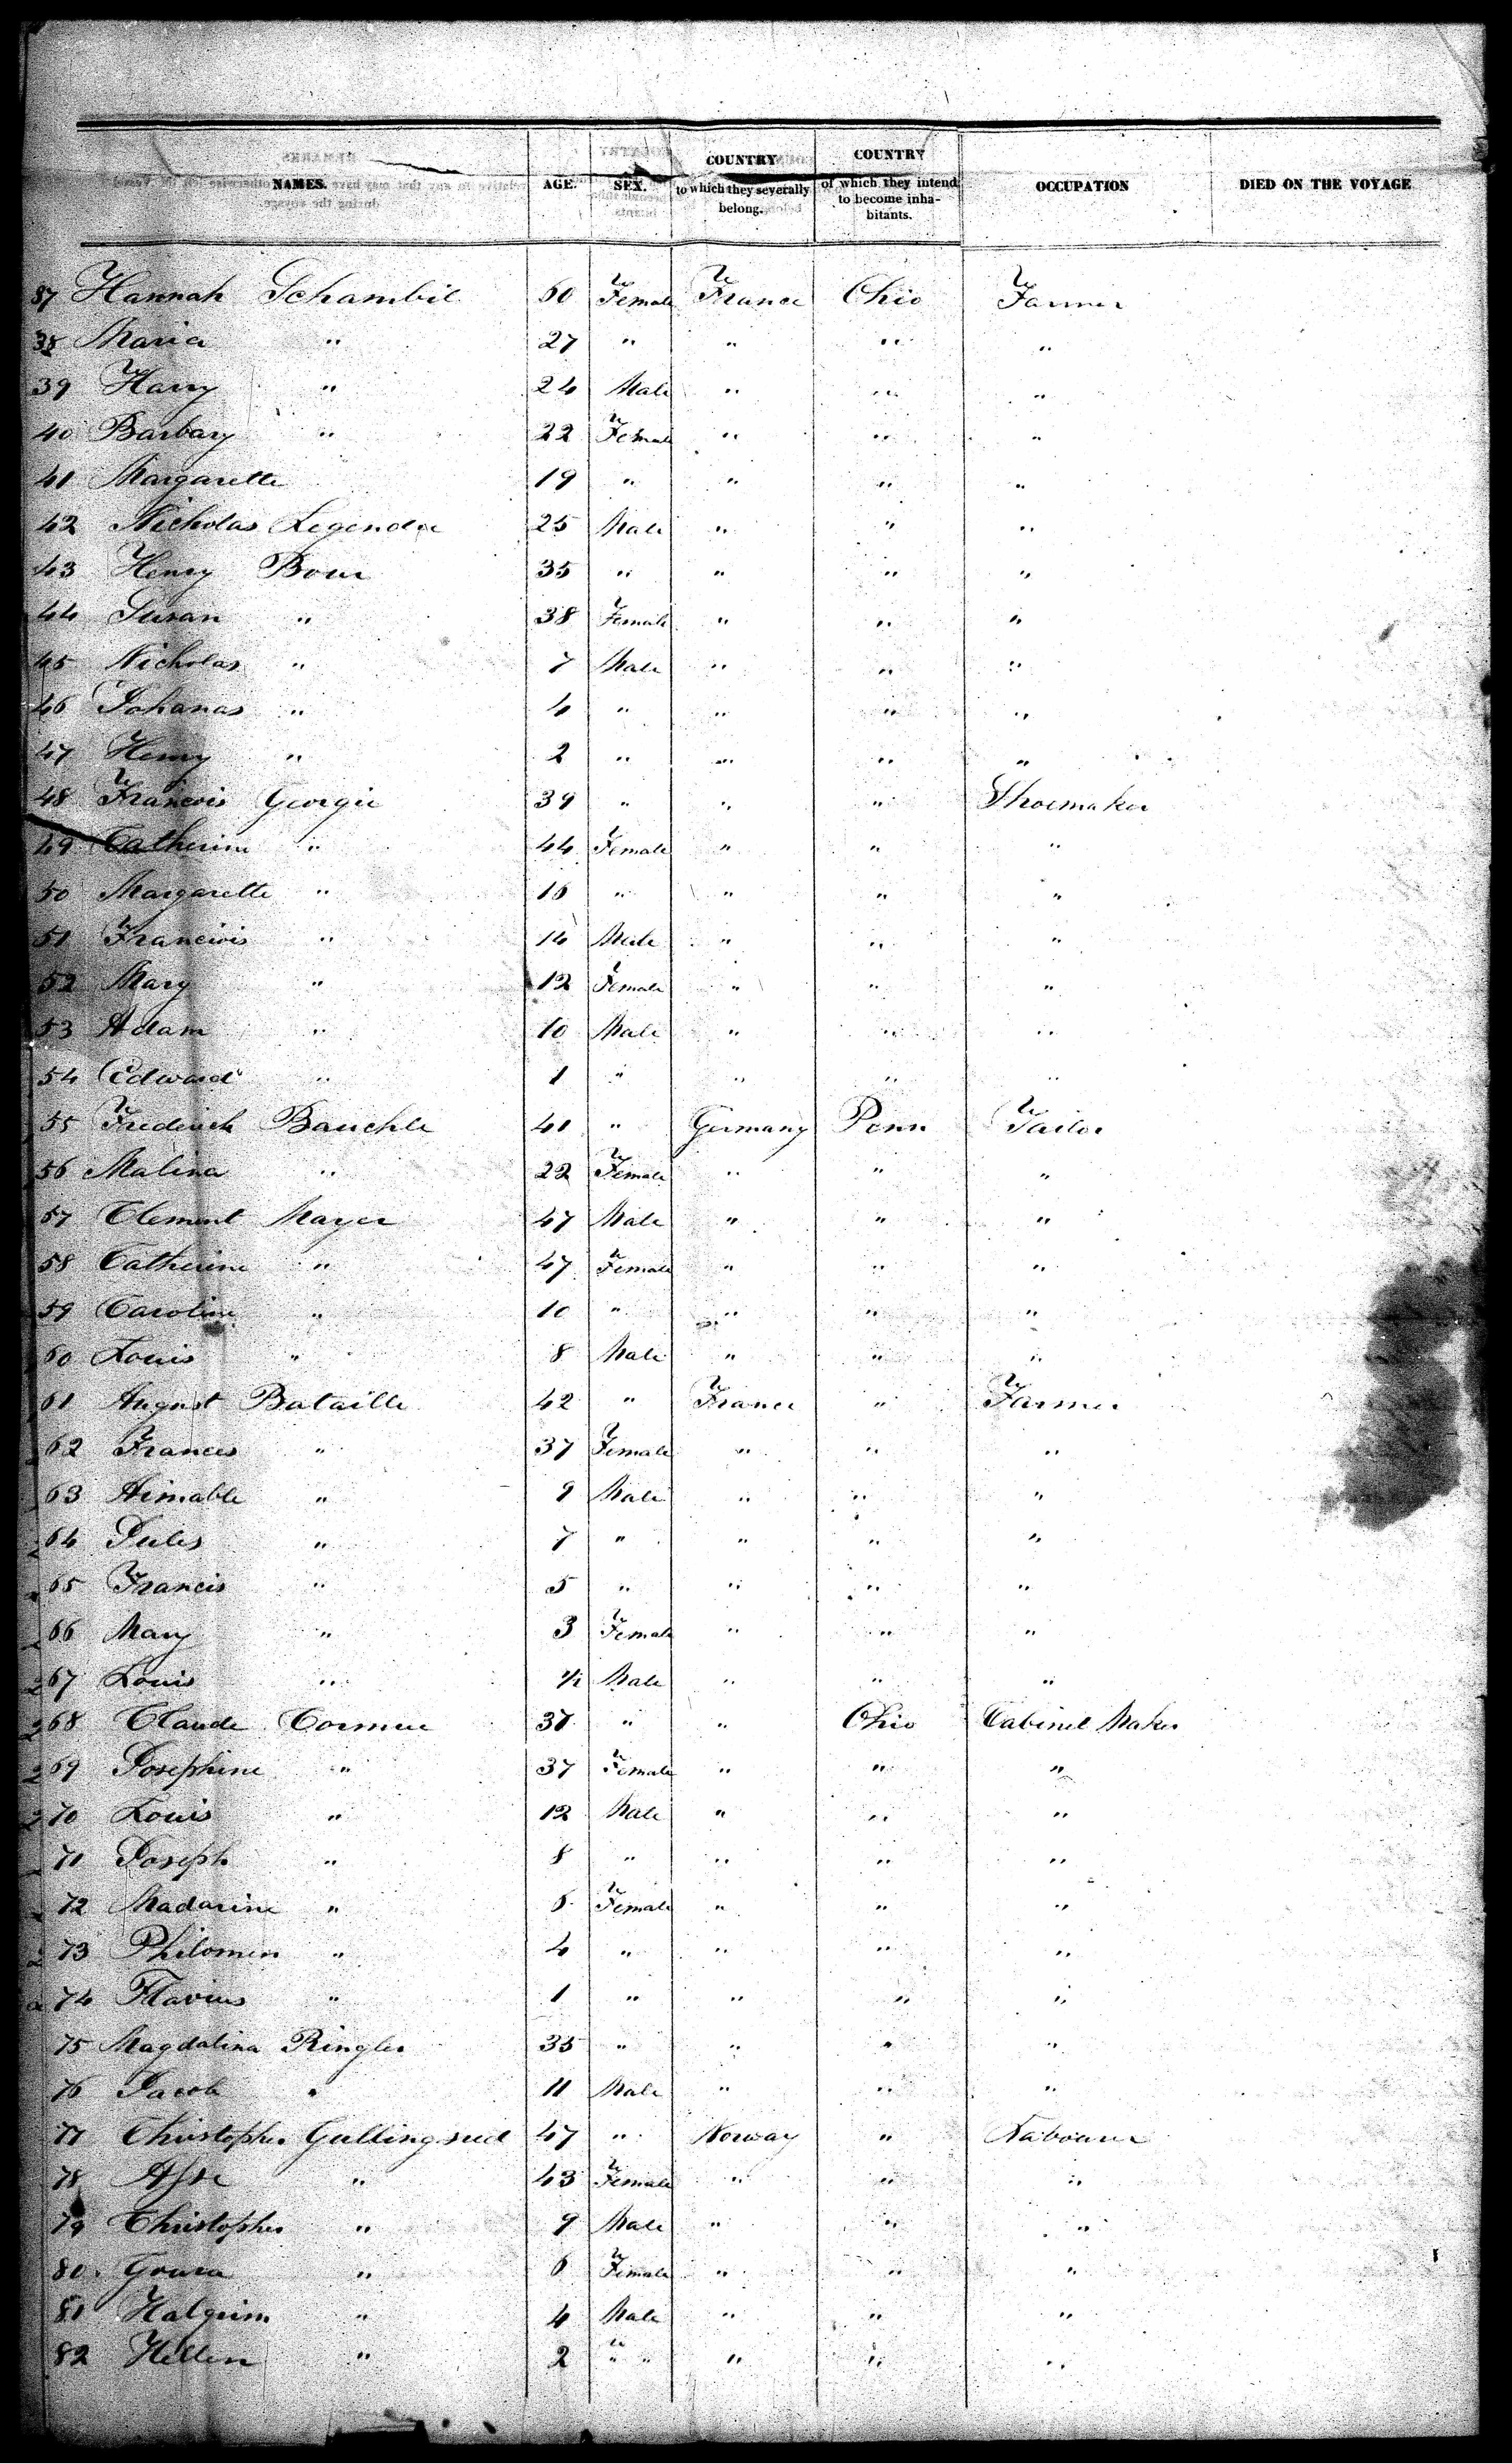 NAMES. AGE. SEX. COUNTRY to which they severally belong. COUNTRY of which they intend to become inhabitants. OCCUPATION DIED ON THE VOYAGE
37 Hannah Schambil 60 Female France Ohio Farmer
38 Maria " 27 " " " "
39 Harry " 24 Male " " "
40 Barbary " 22 Female " " "
41 Margarette 19 " " " "
42 Nicholas Legendre 25 Male " " "
43 Henry Bour 35 " " " "
44 Susan " 38 Female " " "
45 Nicholas " 7 Male " " "
46 Johanas " 4 " " " "
47 Henry " 2 " " " "
48 Francois Georgie 39 " " " Shoemaker
49 Catherine " 44 Female " " "
50 Margarette " 16 " " " "
51 Francois " 14 Male " " "
52 Mary " 12 Female " " "
53 Adam " 10 Male " " "
54 Edward " 1 " " " "
55 Frederick Bauchle 41 " Germany Penn Tailor
56 Malina " 22 Female " " "
57 Clement Mayer 47 Male " " "
58 Catherine " 47 Female " " "
59 Caroline " 10 " " " "
60 Louis " 8 Male " " "
61 August Bataille 42 " France " Farmer
62 Frances " 37 Female " " "
63 Aimable " 9 Male " " "
64 Jules " 7 " " " "
65 Francis " 5 " " " "
66 Mary " 3 Female " " "
67 Louis " ½ Male " " "
68 Claude Cormee 37 " " Ohio Cabinet Maker
69 Josephine " 37 Female " " "
70 Louis " 12 Male " " "
71 Joseph " 8 " " " "
72 Madarine " 6 Female " " "
73 Philomen " 4 " " " "
74 Flavius " 1 " " " "
75 Magdalina Ringler 35 " " " "
76 Jacob " 11 Male " " "
77 Christopher Gullingsrud 47 " Norway " Labourer
78 " 43 Female " " "
79 Christopher " 9 Male " " "
80 " 6 Female " " "
81 Halgrim " 4 Male " " "
82 Hellen " 2 " " " " "